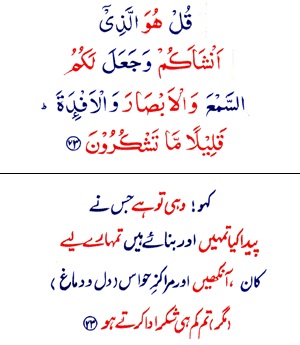 قُلْ هُوَ الَّذِيْٓ
اَنْشَاَكُمْ وَجَعَلَ لَكُمُ
السَّمْعَ وَالْاَبْصَارَ وَالْاَفْـِٕدَةَ ؕ
قَلِيْلًا مَّا تَشْكُرُوْنَ ﴿۲۳﴾
کہو! وہی تو ہے جس نے
پیدا کیا تمہیں اور بنائے ہیں تمہارے لیے
کان ، آنکھیں اور مراکزِ حواس (دل و دماغ)
(مگر) تم کم ہی شکر ادا کرتے ہو ﴿۲۳﴾